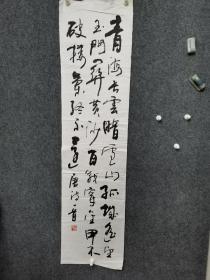 青海長雲暗雪山孤城遥望
玉門關黄沙百戰穿金甲不
破樓蘭終不還唐詩一首